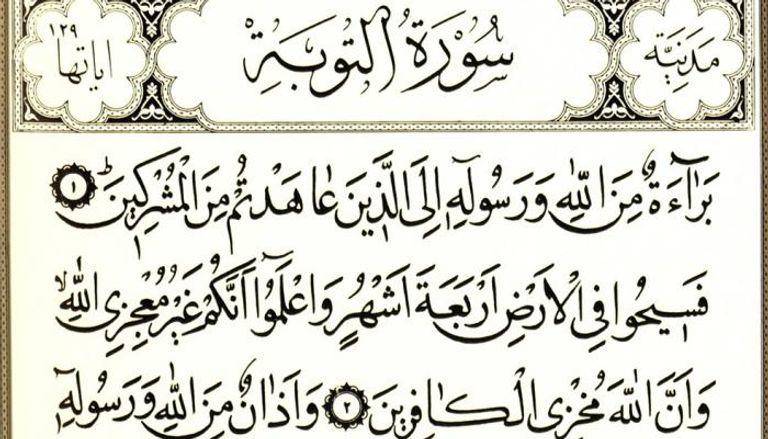 مَدَنِيَّة
سُورَةُ التَّوْبَةِ
اياتها ١٢٩
بَرَٓاءَةٌ مِنَ اللّٰهِ وَرَسُولِهٖٓ اِلَى الَّذٖينَ عَاهَدْتُمْ مِنَ الْمُشْرِكٖينَۜ ١
فَسٖيحُوا فِي الْاَرْضِ اَرْبَعَةَ اَشْهُرٍ وَاعْلَمُٓوا اَنَّكُمْ غَيْرُ مُعْجِزِي اللّٰهِۙ
وَاَنَّ اللّٰهَ مُخْزِي الْكَافِرٖينَ ٢ وَاَذَانٌ مِنَ اللّٰهِ وَرَسُولِهٖٓ